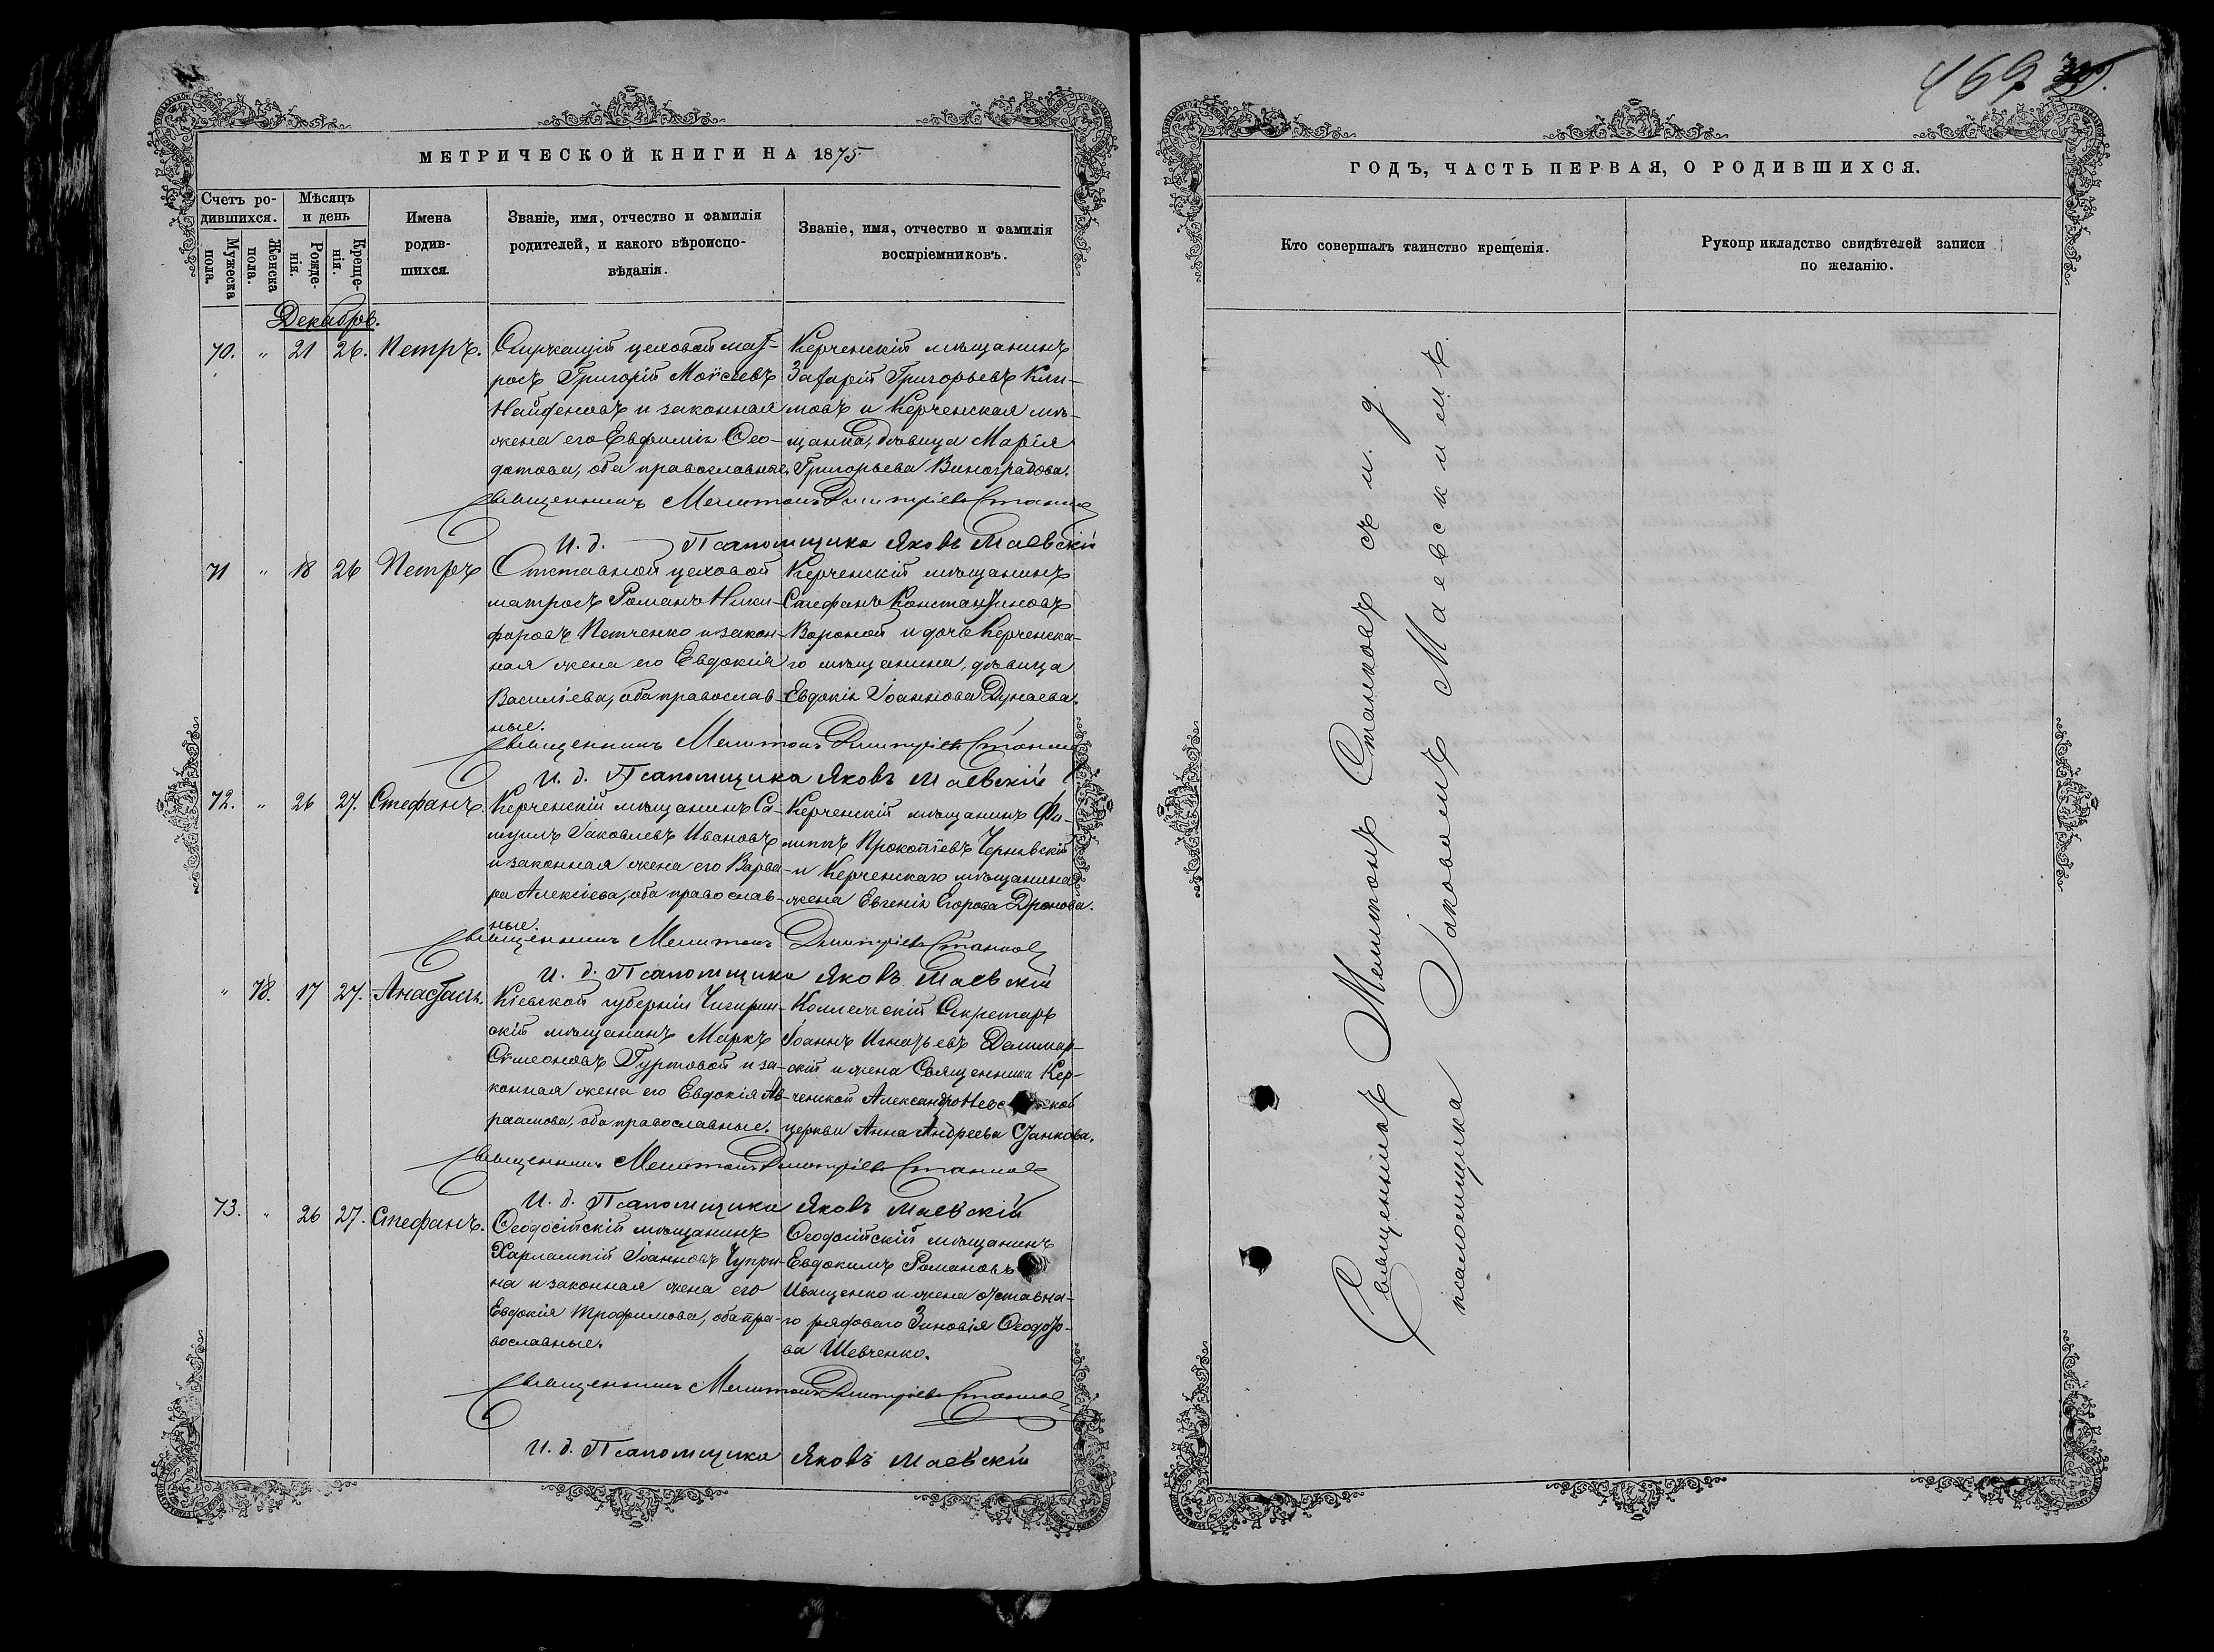 169
МЕТРИЧЕСКОЙ КНИГИ НА 1875
Счетъ ро-
дившихся.
Мужеска
пола.
Женска
пола.
Мѣсяцъ
и день
Рожде-
нія.
Креще-
нія.
Имена
родив-
шихся.
Званіе, имя, отчество и фамилія
родителей, и какого вѣроиспо-
вѣданія.
Званіе, имя, отчество и фамилія
воспріемниковъ.
Декабрь.
70. " 21 26. Петръ.
Служащій цеховой мат-
росъ Григорій Моѵсіевъ
Найденовъ и законная
жена его Евфимія Ѳео-
дотова, оба православные.
Керченскій мѣщанинъ
Захарій Григорьевъ Кли-
мовъ и Керченская мѣ-
щанка, дѣвица Марія
Григорьева Виноградова.
Священникъ Мелитонъ Димитріевъ Станковъ
И. д. Псаломщика Яковъ Маевскій
71 " 18 26 Петръ
Отставной цеховой
матросъ Романъ Ники-
форовъ Петченко и закон-
ная жена его Евдокія
Василіева, оба православ-
ные.
Керченскій мѣщанинъ
Стефанъ Константиновъ
Вороной и дочь Керченска-
го мѣщанина, дѣвица
Евдокія Іоаннова Дунаева.
Священникъ Мелитонъ Димитріевъ Станковъ
И. д. Псаломщика Яковъ Маевскій
72. " 26 27. Стефанъ.
Керченскій мѣщанинъ Са-
муилъ Іаковлевъ Ивановъ
и законная жена его Варва-
ра Алексіева, оба православ-
ные.
Керченскій мѣщанинъ Фи-
липпъ Прокопіевъ Чернявскій
и Керченскаго мѣщанина
жена Евгенія Егорова Дронова.
Священникъ Мелитонъ Димитріевъ Станковъ
И. д. Псаломщика Яковъ Маевскій
" 78. 17 27. Анастасія.
Кіевской губерніи Чигирин-
скій мѣщанинъ Маркъ
Сѵмеоновъ Гуртовой и за-
конная жена его Евдокія Ав-
раамова, оба православные.
Коллежскій Секретарь
Іоаннъ Игнатьевъ Далимар-
скій и жена Священника Кер-
ченской Александро Невской
церкви Анна Андреева Станкова.
Священникъ Мелитонъ Димитріевъ Станковъ
И. д. Псаломщика Яковъ Маевскій
73. " 26 27. Стефанъ.
Ѳеодосійскій мѣщанинъ
Харлампій Іоанновъ Чупри-
на и законная жена его
Евдокія Трофимова, оба пра-
вославные.
Ѳеодосійскій мѣщанинъ
Евдокимъ Романовъ
Иващенко и жена отставна-
го рядоваго Зиновія Ѳеодото-
ва Шевченко.
Священникъ Мелитонъ Димитріевъ Станковъ
И. д. Псаломщика Яковъ Маевскій
ГОДЪ, ЧАСТЬ ПЕРВАЯ, О РОДИВШИХСЯ.
Кто совершалъ таинство крещенія.
Рукоприкладство свидѣтелей записи
по желанію.
Священникъ Мелитонъ Станковъ съ и. д.
псаломщика Іаковомъ Маевскимъ.